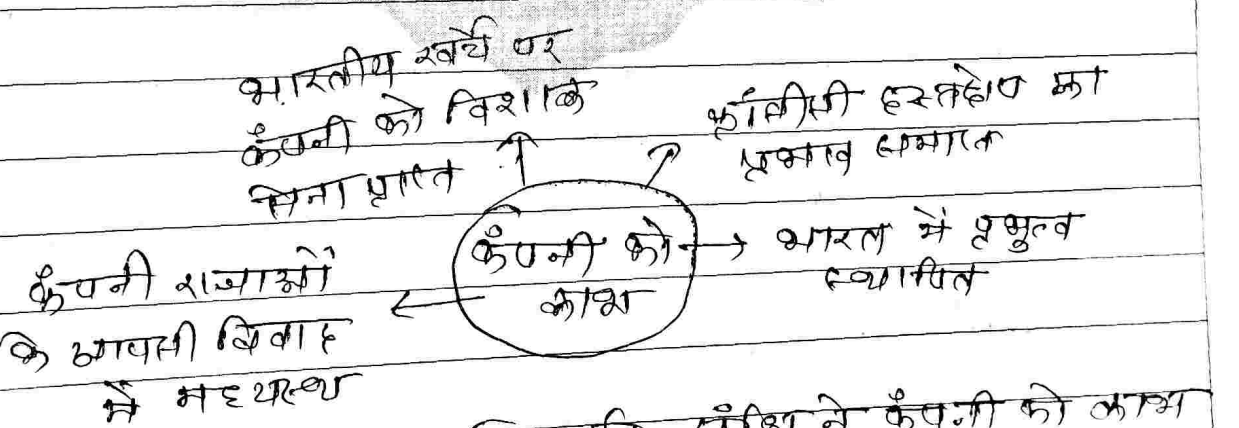 भारतीय खर्चे पर
कंपनी को विशाल
सेना प्राप्त
फ्रांसीसी हस्तक्षेप का
प्रभाव समाप्त
कंपनी को
लाभ
भारत में प्रभुत्व
स्थापित
कंपनी राजाओं
के आपसी विवाद
में मध्यस्थ
संधि ने कंपनी को लाभ